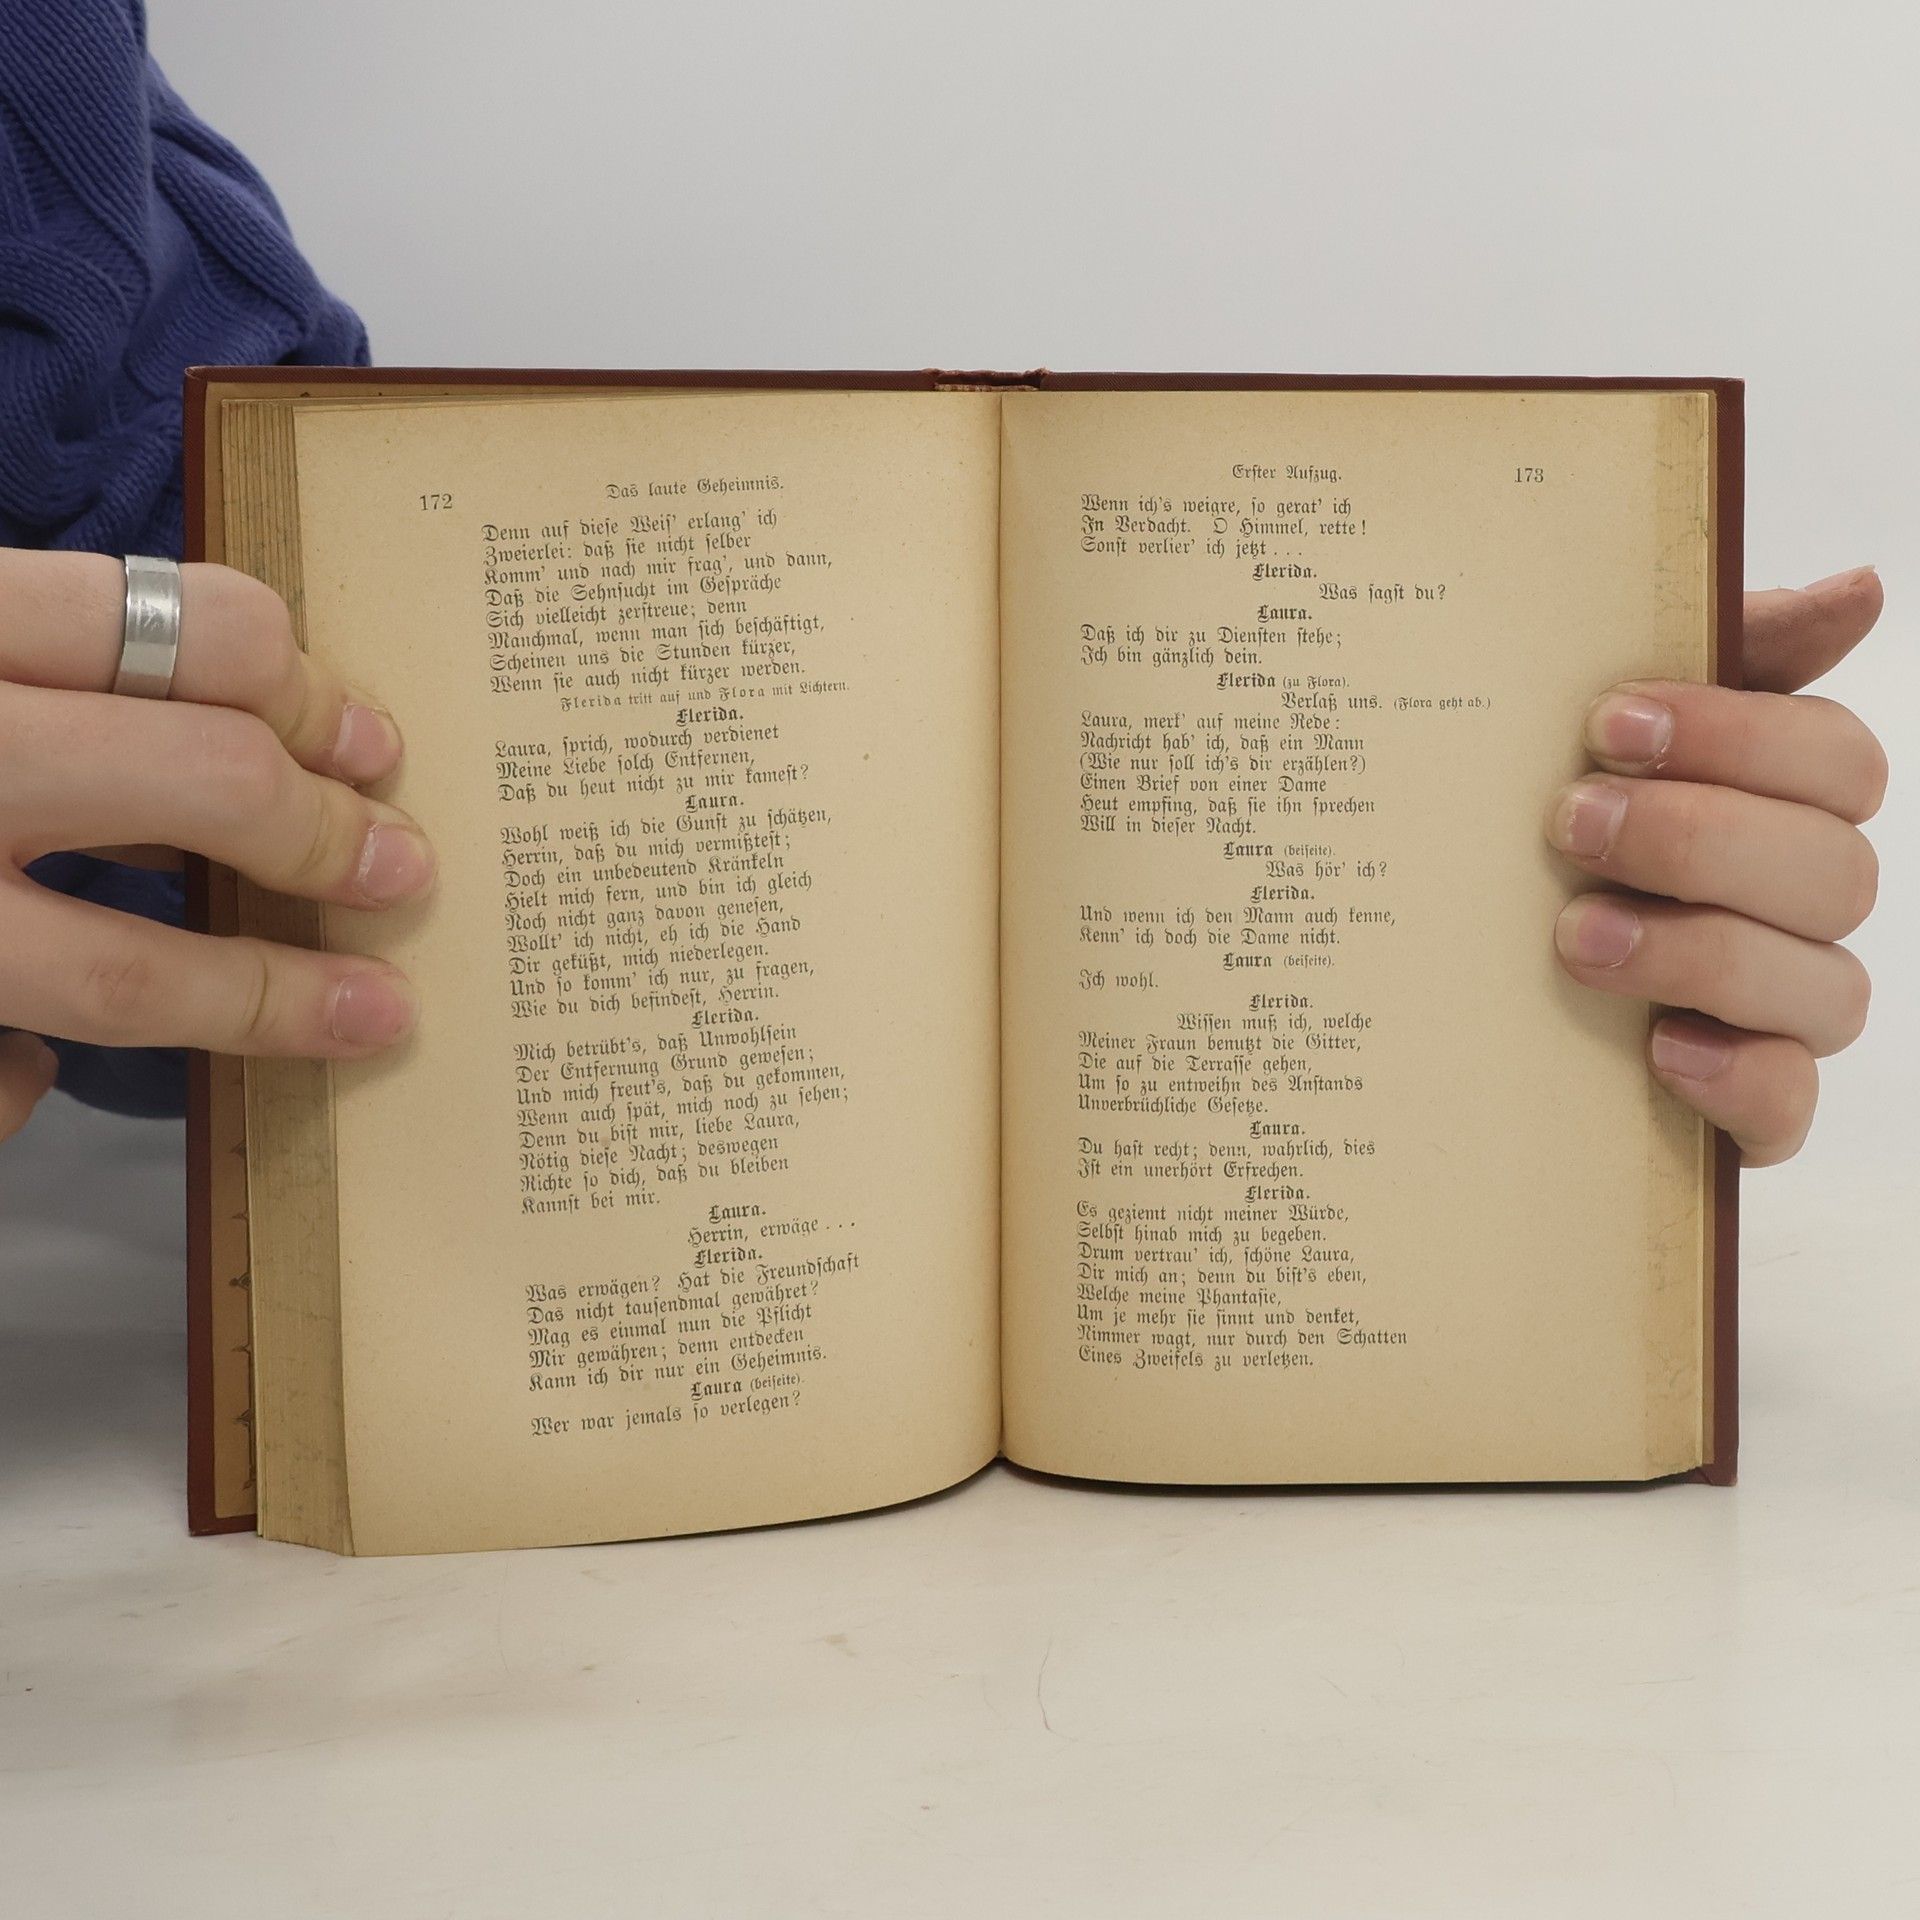 172
Das laute Geheimnis.
Denn auf dieſe Weiſ' erlang' ich
Zweierlei: daß ſie nicht ſelber
Komm' und nach mir frag', und dann,
Daß die Sehnſucht im Geſpräche
Sich vielleicht zerſtreue; denn
Manchmal, wenn man ſich beſchäftigt,
Scheinen uns die Stunden kürzer,
Wenn ſie auch nicht kürzer werden.
Flerida tritt auf und Flora mit Lichtern.
Flerida.
Laura, ſprich, wodurch verdienet
Meine Liebe ſolch Entfernen,
Daß du heut nicht zu mir kameſt?
Laura.
Wohl weiß ich die Gunſt zu ſchätzen,
Herrin, daß du mich vermißteſt;
Doch ein unbedeutend Kränkeln
Hielt mich fern, und bin ich gleich
Noch nicht ganz davon geneſen,
Wollt' ich nicht, eh ich die Hand
Dir geküßt, mich niederlegen.
Und ſo komm' ich nur, zu fragen,
Wie du dich befindeſt, Herrin.
Flerida.
Mich betrübt's, daß Unwohlſein
Der Entfernung Grund geweſen;
Und mich freut's, daß du gekommen,
Wenn auch ſpät, mich noch zu ſehen;
Denn du biſt mir, liebe Laura,
Nötig dieſe Nacht; deswegen
Richte ſo dich, daß du bleiben
Kannſt bei mir.
Laura.
Herrin, erwäge . . .
Flerida.
Was erwägen? Hat die Freundſchaft
Das nicht tauſendmal gewähret?
Mag es einmal nun die Pflicht
Mir gewähren; denn entdecken
Kann ich dir nur ein Geheimnis.
Laura (beiſeite).
Wer war jemals ſo verlegen?
Erſter Aufzug.
173
Wenn ich's weigre, ſo gerat' ich
In Verdacht. O Himmel, rette!
Sonſt verlier' ich jetzt . . .
Flerida.
Was ſagſt du?
Laura.
Daß ich dir zu Dienſten ſtehe;
Ich bin gänzlich dein.
Flerida (zu Flora).
Verlaß uns. (Flora geht ab.)
Laura, merk' auf meine Rede:
Nachricht hab' ich, daß ein Mann
(Wie nur ſoll ich's dir erzählen?)
Einen Brief von einer Dame
Heut empfing, daß ſie ihn ſprechen
Will in dieſer Nacht.
Laura (beiſeite).
Was hör' ich?
Flerida.
Und wenn ich den Mann auch kenne,
Kenn' ich doch die Dame nicht.
Laura (beiſeite).
Ich wohl.
Flerida.
Wiſſen muß ich, welche
Meiner Fraun benutzt die Gitter,
Die auf die Terraſſe gehen,
Um ſo zu entweihn des Anſtands
Unverbrüchliche Geſetze.
Laura.
Du haſt recht; denn, wahrlich, dies
Iſt ein unerhört Erfrechen.
Flerida.
Es geziemt nicht meiner Würde,
Selbſt hinab mich zu begeben.
Drum vertrau' ich, ſchöne Laura,
Dir mich an; denn du biſt's eben,
Welche meine Phantaſie,
Um je mehr ſie ſinnt und denket,
Nimmer wagt, nur durch den Schatten
Eines Zweifels zu verletzen.